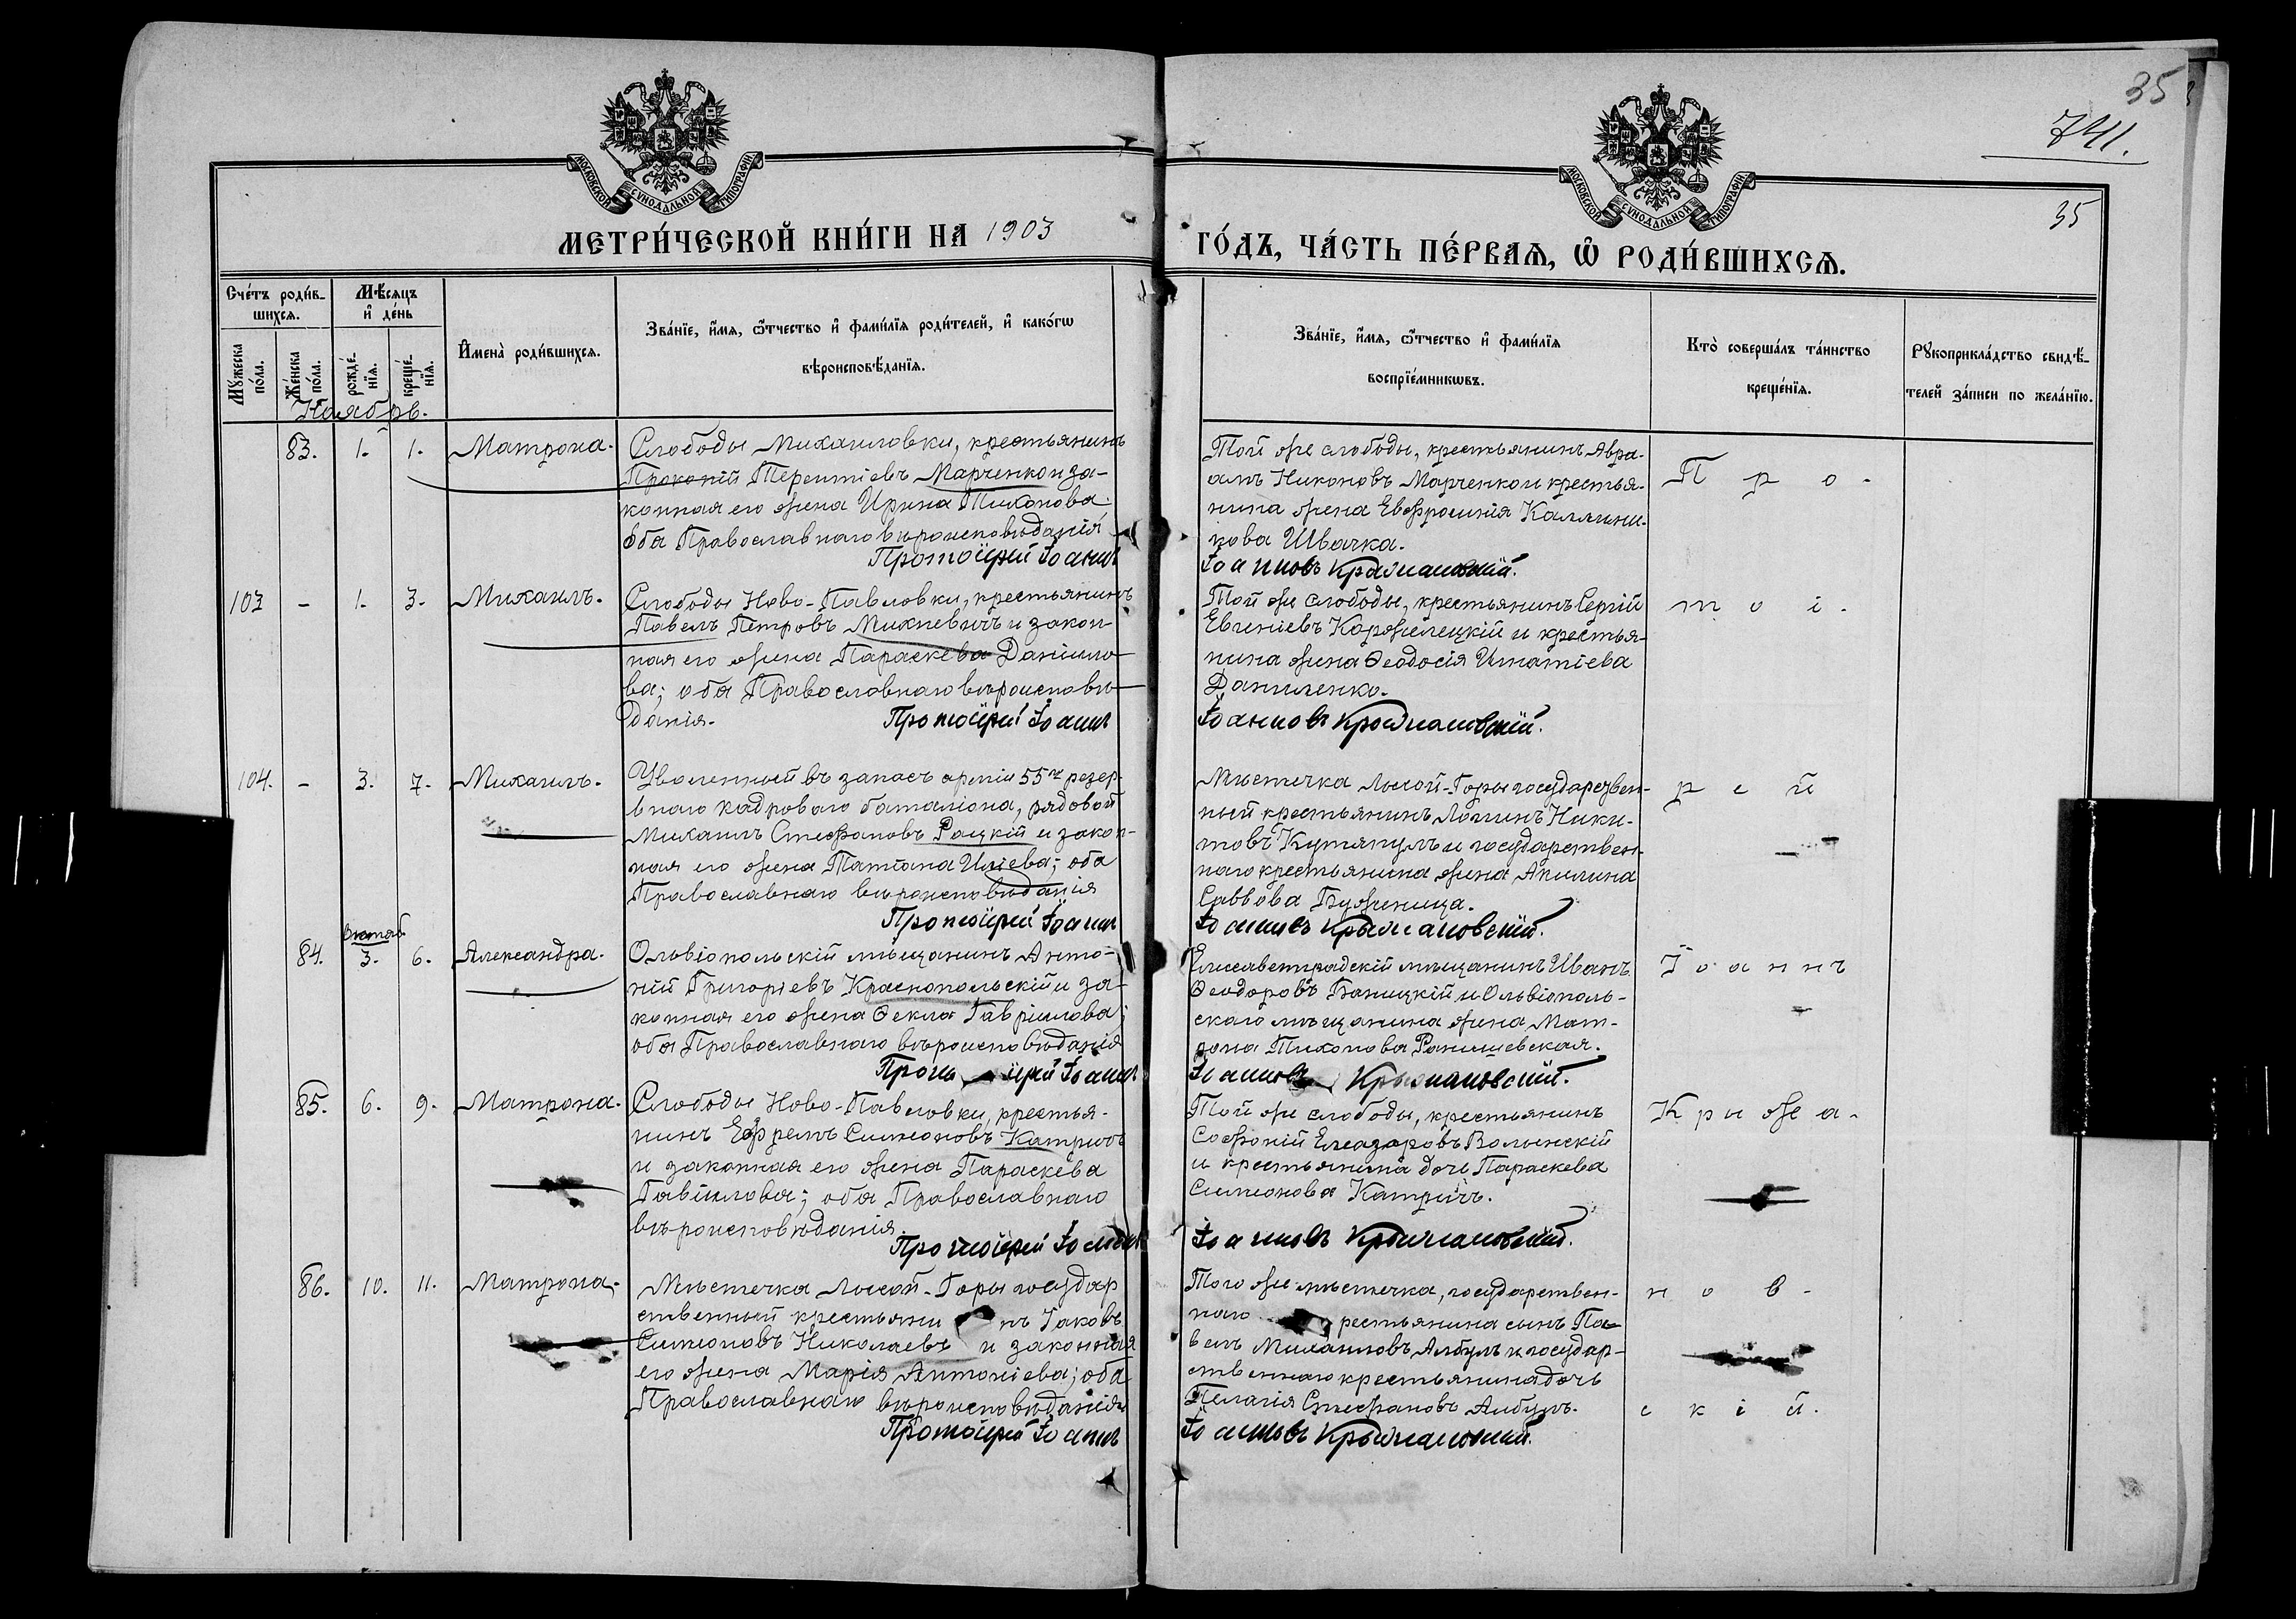 35
741.
МОСКОВСКОЙ СѴНОДАЛЬНОЙ ТИПОГРАФІИ
МОСКОВСКОЙ СѴНОДАЛЬНОЙ ТИПОГРАФІИ
35
МЕТРИ́ЧЕСКОЙ КНИ́ГИ НА 1903
ГО́ДЪ, ЧА́СТЬ ПЕ́РВАѦ, Ѽ РОДИ́ВШИХСѦ.
Сче́тъ роди́в-
шихсѧ.
Мꙋ́жеска по́ла.
Же́нска по́ла.
Мѣ́сѧцъ и҆ де́нь
рожде́-нїѧ.
креще́-нїѧ.
И҆мена̀ роди́вшихсѧ.
Зва́нїе, и҆́мѧ, ѻ҆́тчество и҆ фами́лїѧ роди́телей, и҆ како́гѡ
вѣроисповѣ́данїѧ.
Зва́нїе, и҆́мѧ, ѻ҆́тчество и҆ фами́лїѧ
воспрїе́мникѡвъ.
Кто̀ соверша́лъ та́инство
креще́нїѧ.
Рꙋкоприкла́дство свидѣ́-
телей за́писи по жела́нїю.
Ноябрь.
83. 1. 1. Матрона.
Слободы Михаиловки, крестьянинъ
Прокопій Терентіевъ Марченко и за-
конная его жена Ирина Тихонова;
оба Православнаго вѣроисповѣданія
Протоіерей Іоаннъ
Той же слободы, крестьянинъ Авра-
амъ Никоновъ Марченко и крестья-
нина жена Евфросинія Каллини-
кова Швачка.
Іоанновъ Крыжановскій.
Про-
103 – 1. 3. Михаилъ.
Слободы Ново-Павловки, крестьянинъ
Павелъ Петровъ Михневичъ и закон-
ная его жена Параскева Даніило-
ва; оба Православнаго вѣроисповѣ-
данія.
Протоіерей Іоаннъ
Той же слободы, крестьянинъ Сергій
Евгеніевъ Коржелецкій и крестья-
нина жена Ѳеодосія Игнатіева
Даниленко.
Іоанновъ Крыжановскій.
тоі-
104. – 3. 7. Михаилъ.
Уволенный въ запасъ арміи 55го резер-
внаго кадроваго баталіона, рядовой
Михаилъ Стефановъ Рацкій и закон-
ная его жена Татіана Иліева; оба
Православнаго вѣроисповѣданія
Протоіерей Іоаннъ
Мѣстечка Лысой-Горы государствен-
ный крестьянинъ Логинъ Ники-
товъ Кутяпулъ и государствен-
наго крестьянина жена Акилина
Саввова Буженица.
Іоанновъ Крыжановскій.
рей
Октяб
84. 3. 6. Александра.
Ольвіопольскій мѣщанинъ Анто-
ній Григоріевъ Краснопольскій и за-
конная его жена Ѳекла Гавріилова;
оба Православнаго вѣроисповѣданія
Протоіерей Іоаннъ
Елисаветградскій мѣщанинъ Иванъ
Ѳеодоровъ Баницкій и Ольвіополь-
скаго мѣщанина жена Мат-
рона Тихонова Ранишевская.
Іоанновъ Крыжановскій.
Іоаннъ
85. 6. 9. Матрона.
Слободы Ново-Павловки, крестья-
нинъ Ефремъ Симеоновъ Катричъ
и законная его жена Параскева
Гавіилова; оба Православнаго
вѣроисповѣданія
Протоіерей Іоаннъ
Той же слободы, крестьянинъ
Софроній Елеазаровъ Волынскій
и крестьянина дочь Параскева
Симеонова Катричъ.
Іоанновъ Крыжановскій.
Крыжа-
86. 10. 11. Матрона.
Мѣстечка Лысой-Горы государ
ственный крестьянинъ Іаковъ
Симеоновъ Николаевъ и законная
его жена Марія Антоніева; оба
Православнаго вѣроисповѣданія
Протоіерей Іоаннъ
Того же мѣстечка, государствен-
наго крестьянина сынъ Па-
велъ Михаиловъ Албулъ и государ-
ственнаго крестьянина дочь
Пелагія Стефановъ Албулъ.
Іоанновъ Крыжановскій.
нов-
скій.